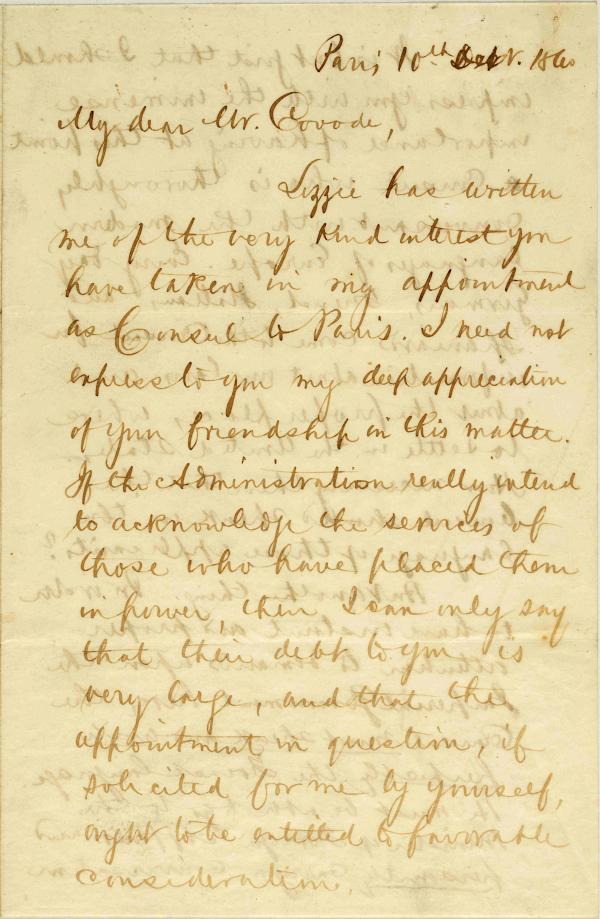 Paris 10th 1860
My dear Mr. Covode,
Lizzie has written
me of the very kind interest you
have taken in my appointment
as Consul to Paris. I need not
express to you my deep appreciation
of your friendship in this matter.
If the Administration really intend
to acknowledge the services of
those who have placed them
in power, then I can only say
that their debt to you is
very large, and that the
appointment in question, if
solicited for me by yourself,
ought to be entitled to favorable
consideration.